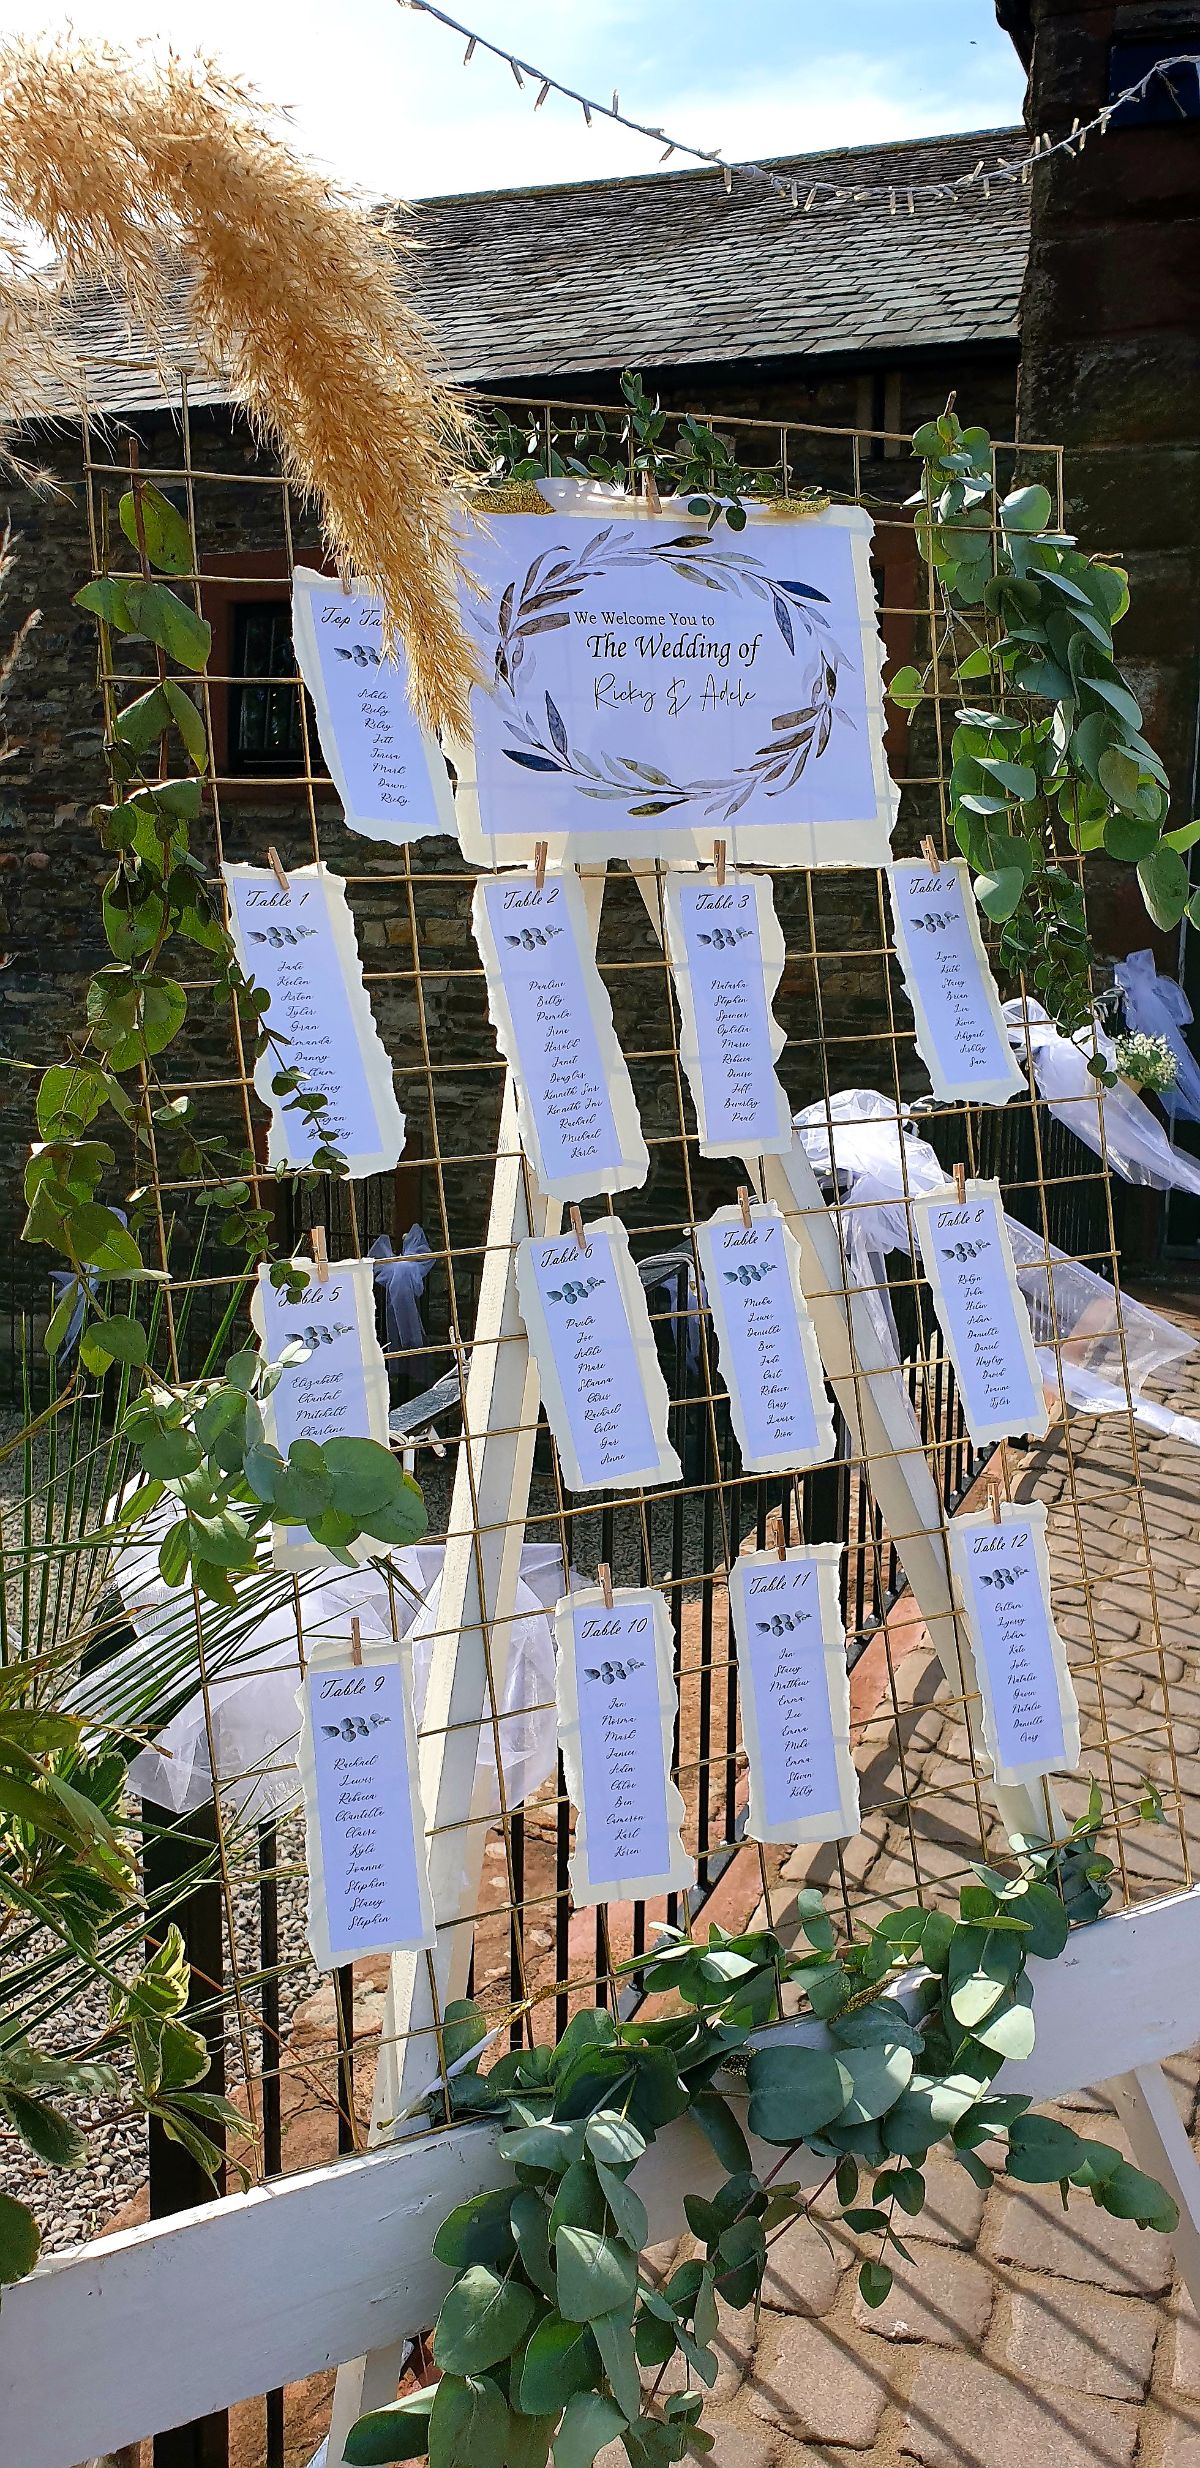 We Welcome You to
The Wedding of
Ricky & Adele
Top
Adele
Ricky
Riley
Teresa
Mark
Dawn
Ricky
Table 1
Jade
Keelen
Aston
Tyler
Gran
Amanda
Danny
Callum
Courtney
Table 2
Pauline
Billy
Pamela
Irene
Harold
Janet
Douglas
Kenneth Snr
Kenneth Jnr
Rachael
Michael
Karla
Table 3
Natasha
Stephen
Spencer
Ophelia
Marie
Rebecca
Denise
Jeff
Beverley
Paul
Table 4
Lynn
Keith
Stacey
Brian
Lia
Kevin
Abigail
Ashley
Sam
Table 5
Elizabeth
Chantal
Mitchell
Charlene
Table 6
Paula
Joe
Adele
Marc
Shanna
Chris
Rachael
Colin
Anne
Table 7
Lewis
Danielle
Ben
Jade
Carl
Rebecca
Craig
Laura
Dion
Table 8
Robyn
John
Helen
Adam
Danielle
Daniel
Hayley
David
Joanne
Tyler
Table 9
Rachael
Lewis
Rebecca
Chantelle
Claire
Kyle
Joanne
Stephen
Stacey
Stephen
Table 10
Ian
Norma
Mark
Janice
Aiden
Chloe
Ben
Cameron
Karl
Karen
Table 11
Ian
Stacey
Matthew
Emma
Lee
Emma
Mike
Emma
Steven
Kelly
Table 12
Callum
Lynsey
Adam
Kate
John
Natalie
Gavin
Natalie
Danielle
Craig